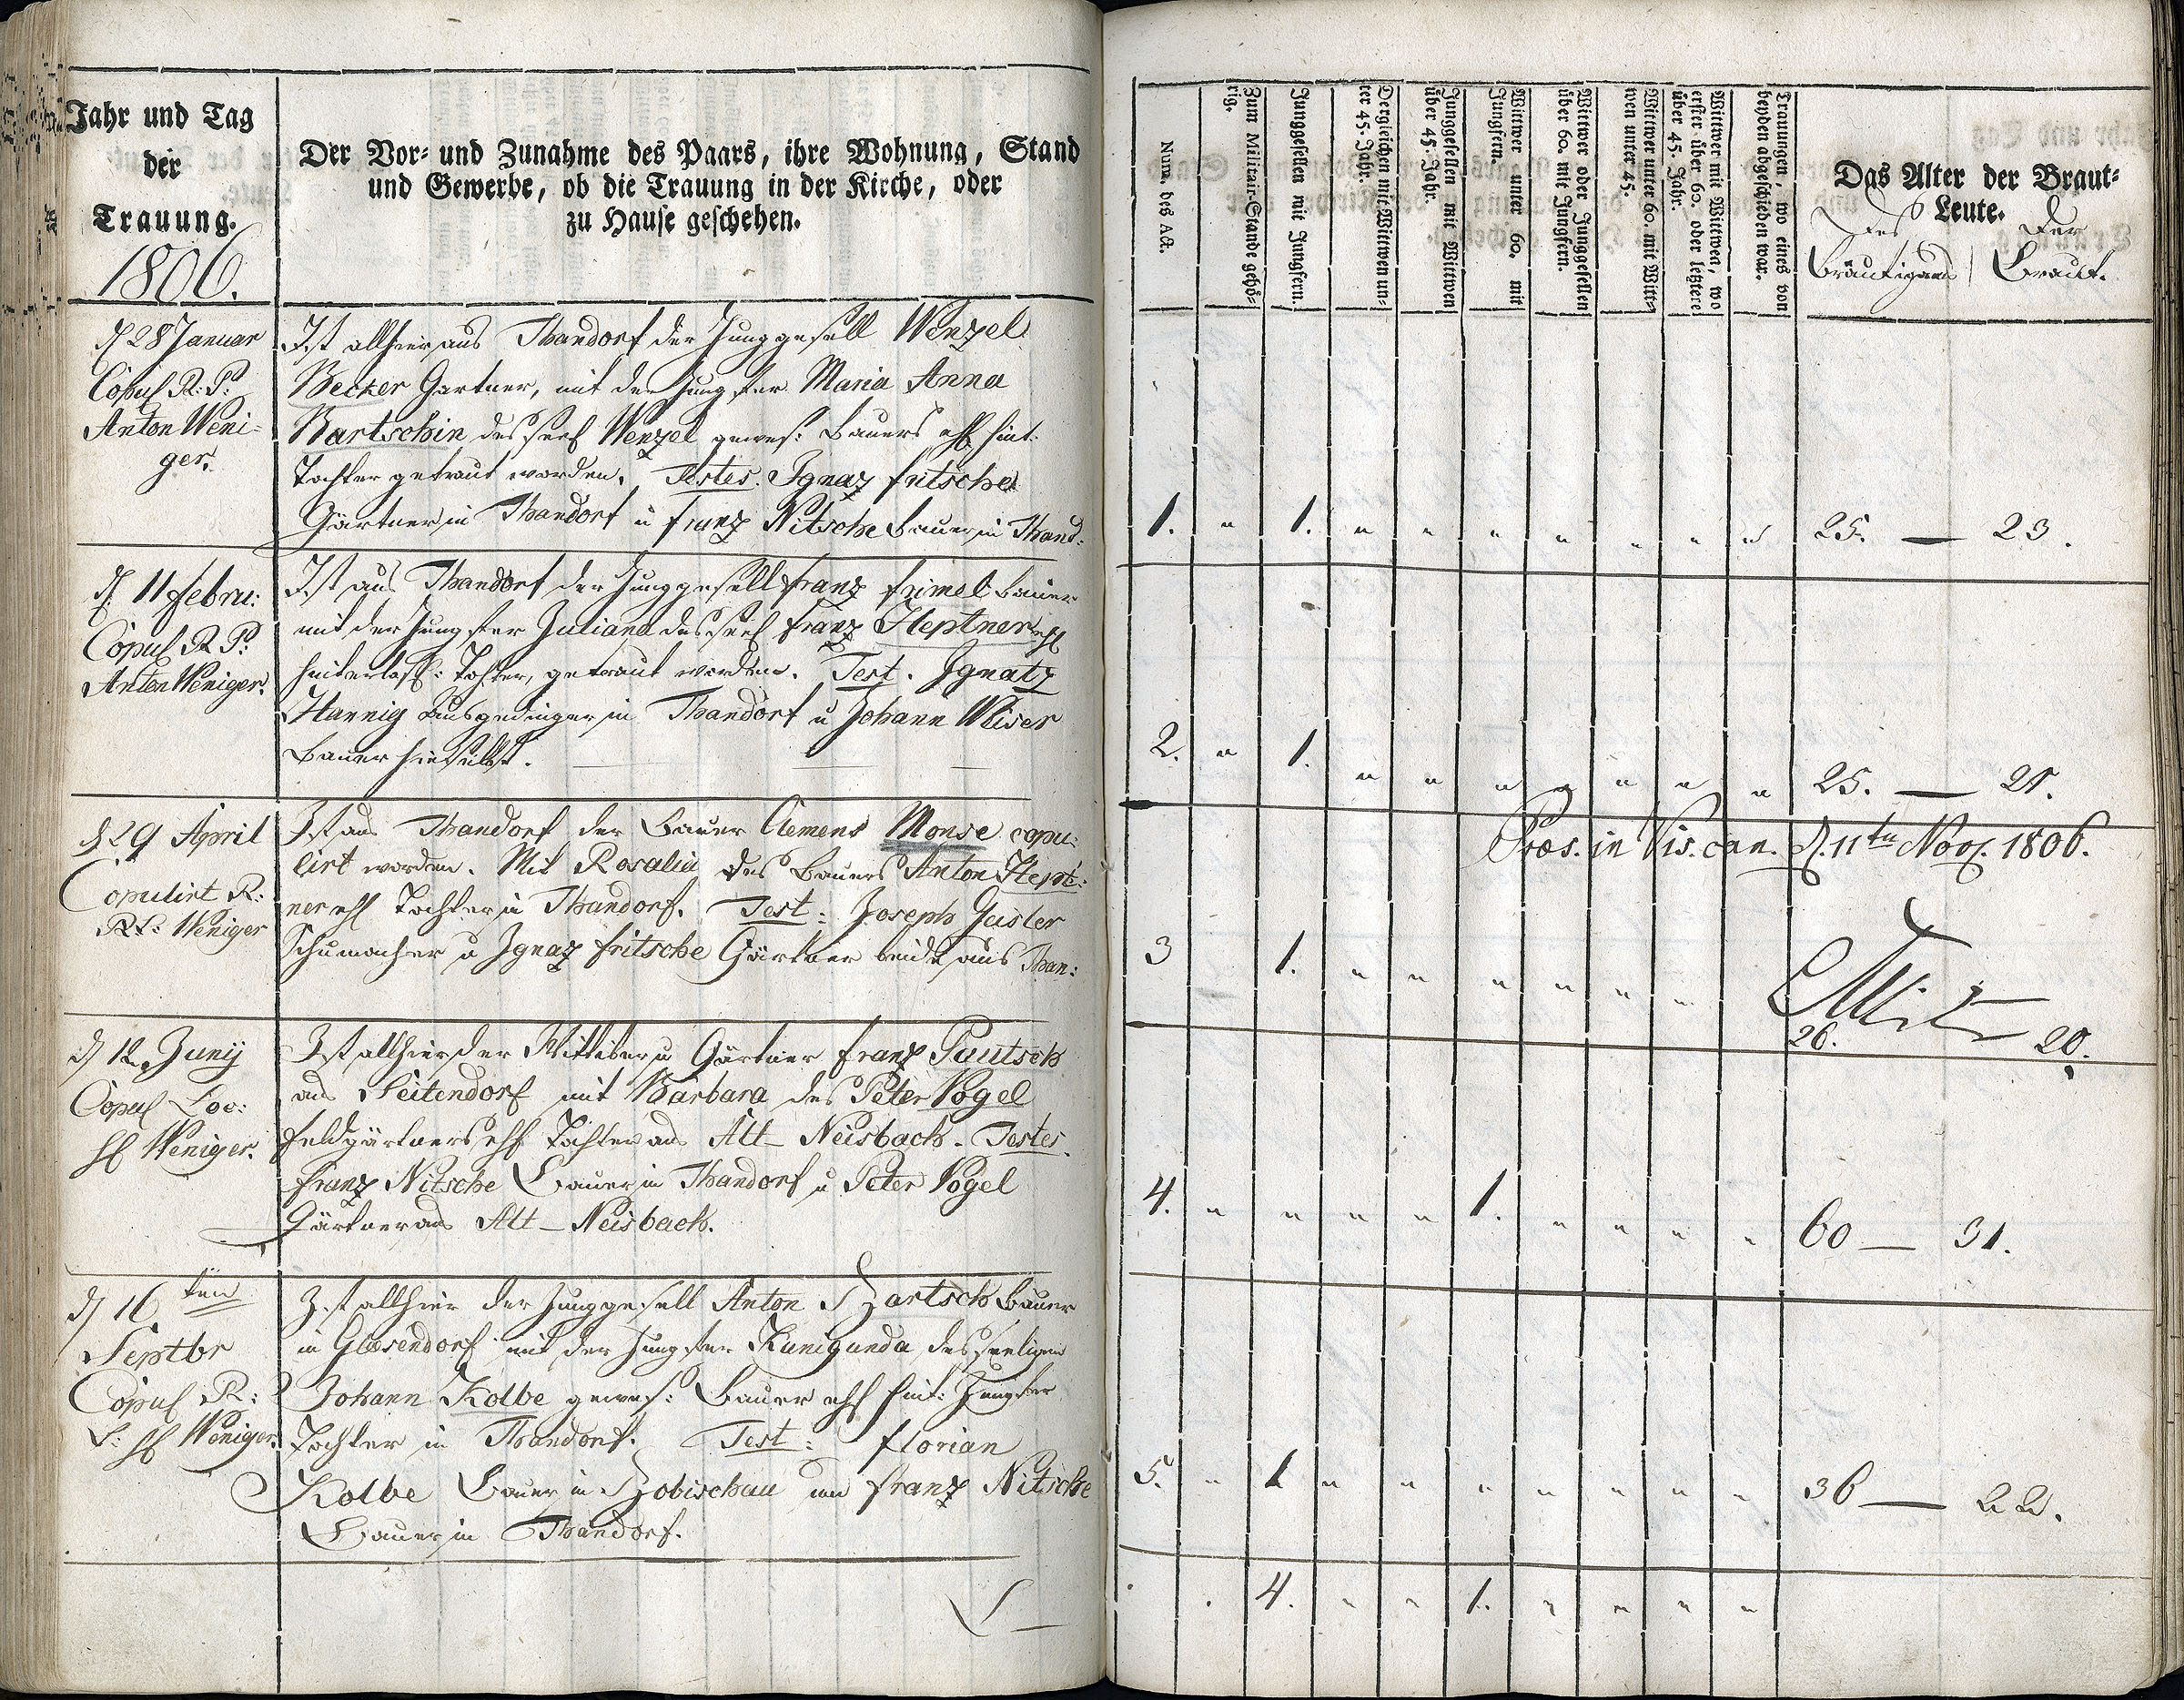 Jahr und Tag
der
Trauung.
1806.
Der Vor- und Zunahme des Paars, ihre Wohnung, Stand
und Gewerbe, ob die Trauung in der Kirche, oder
zu Hause geschehen.
d 28 Januar
Copul R: P:
Anton Weni-
ger.
Ist allhier aus Thandorf der Junggesell Wenzel
Becker Gartner, mit der Jungfer Maria Anna
Bartschin des seel Wenzel gewes: Bauers ehl hint:
Tochter getraut worden. Testes. Ignaz fritsche
Gärtner in Thandorf u franz Nitsche Bauer in Thand:
d. 11 febru:
Copul R P:
Anton Weniger.
Ist aus Thandorf der Junggesell franz frimel Bauer
mit der Jungfer Juliana des seel franz Heptner ehl
hinterlass: Tochter, getraut worden. Test. Ignatz
Hannig Ausgedinger in Thandorf u Johann Weiser
Bauer hieselbst.
d 29 April
Copulirt R:
Weniger
Ist aus Thandorf der Bauer Clemens Monse copu:
lirt worden. Mit Rosalia des Bauers Anton Hept:
ner ehl Tochter in Thandorf. Test: Joseph Geisler
Schumacher u Ignaz fritsche Gärtner beide aus Than:
d 12 Junij
Copul Loc:
Weniger.
Ist allhier der Wittiber u Gärtner franz Pautsch
aus Seitendorf mit Barbara des Peter Vogel
feldgärtners ehl Tochter aus Alt-Neisbach. Testes.
franz Nitsche Bauer in Thandorf u Peter Vogel
Gärtner aus Alt-Neisbach.
d 16 ten
Septbr
Copul R:
Weniger.
Ist allhier der Junggesell Anton Bartsch Bauer
in Glasendorf mit der Jungfer Kunigunda des seeligen
Johann Kolbe gewes: Bauer ehl hint: Jungfer
Tochter in Thandorf. Test: florian
Kolbe Bauer in Zobischau un franz Nitsche
Bauer in Thandorf.
Num. des Act.
Zum Militair-Stande gehö-
rig.
Junggesellen mit Jungfern.
Dergleichen mit Wittwen un-
ter 45. Jahr.
Junggesellen mit Wittwen
über 45. Jahr.
Wittwer unter 60. mit
Jungfern.
Wittwer oder Junggesellen
über 60. mit Jungfern.
Wittwer unter 60. mit Witt-
wen unter 45.
Wittwer mit Wittwen, wo
erster über 60. oder letztere
über 45. Jahr.
Trauungen, wo eines von
beyden abgeschieden war.
Das Alter der Braut-
Leute.
Des Der
Bräutigams Braut.
1. " 1. " " " " " " " 25. — 23.
2. " 1. " " " " " " " 25. — 21.
Præs. in Vis. can. d. 11ten Nov. 1806.
3 1. " " " " " " 26. 20.
4. " " " " 1. " " " " 60 — 31.
5. " 1 " " " " " " " 36 — 22.
. 4. " " 1. " " " "